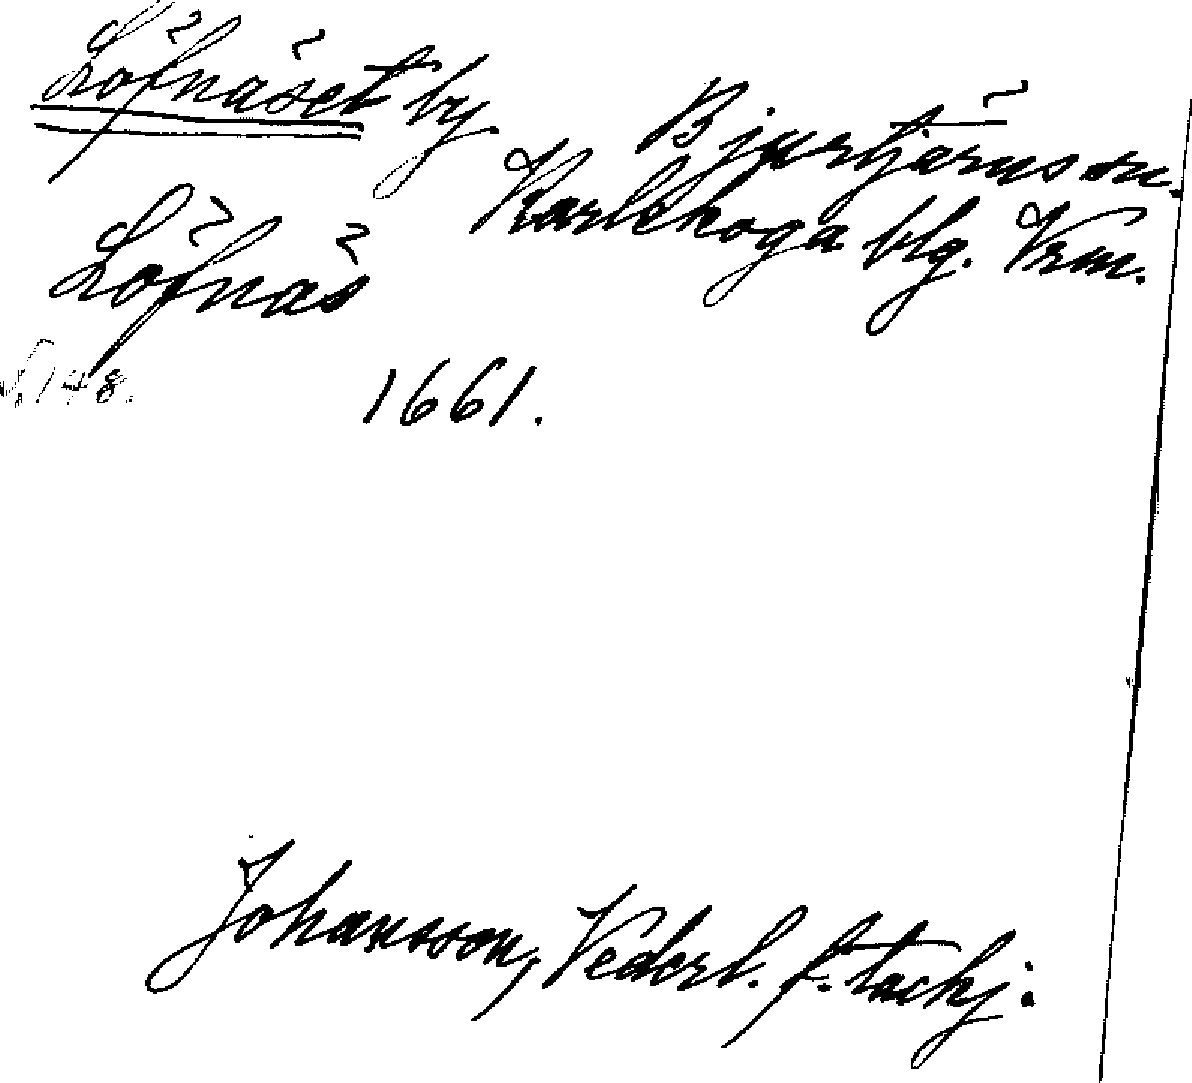 Löfnäset by
Bjurtjärns sn.
Karlskoga blg. Vrm.
Löfnäs
S. 148.
1661.
Johansson, Vederl. f. tackj: